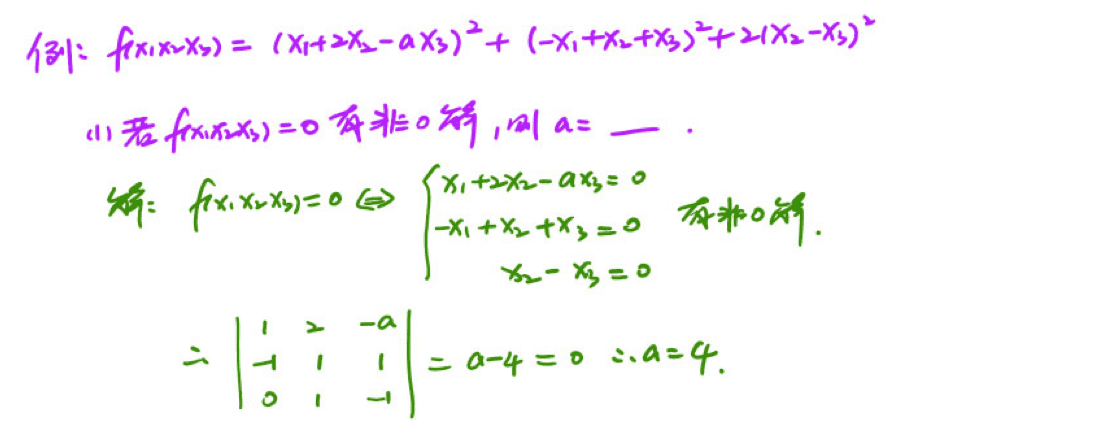 例: f(x₁x₂x₃) = (x₁+2x₂-ax₃)²+ (-x₁+x₂+x₃)²+2(x₂-x₃)²
(1) 若 f(x₁x₂x₃)=0 有非0解,则 a= __ .
解: f(x₁x₂x₃)=0 ⇔ { x₁+2x₂-ax₃=0
-x₁+x₂+x₃=0 有非0解.
x₂-x₃=0
∴ | 1 2 -a |
| -1 1 1 | = a-4=0 ∴a=4.
| 0 1 -1 |